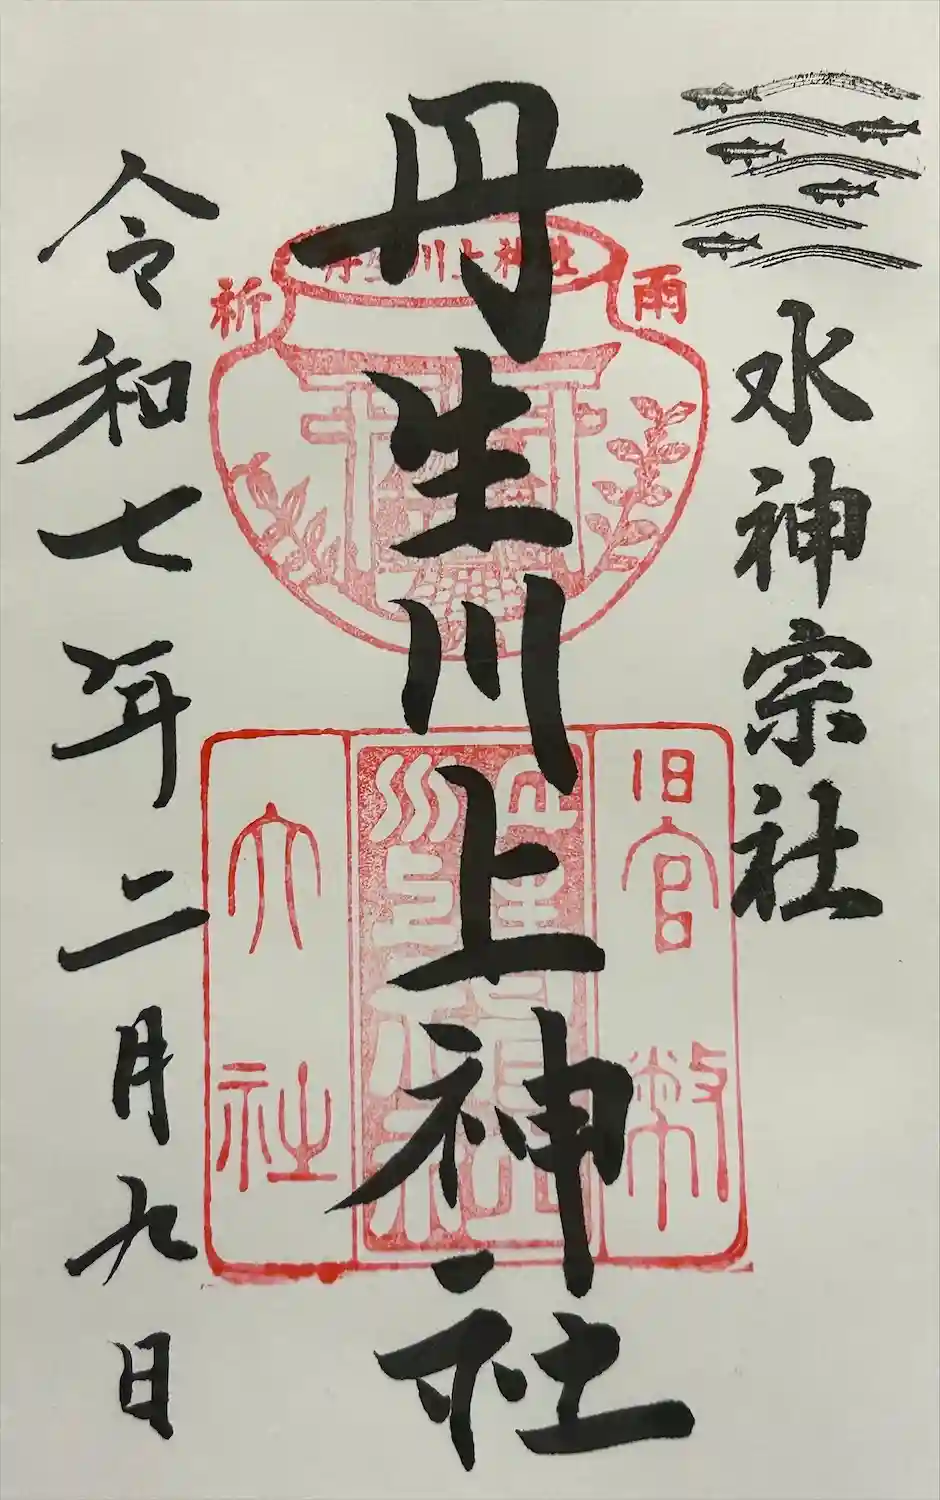 水神宗社
丹生川上神社
令和七年二月九日
雨
祈
丹生川上神社
旧官幣
大社
丹生川上神社